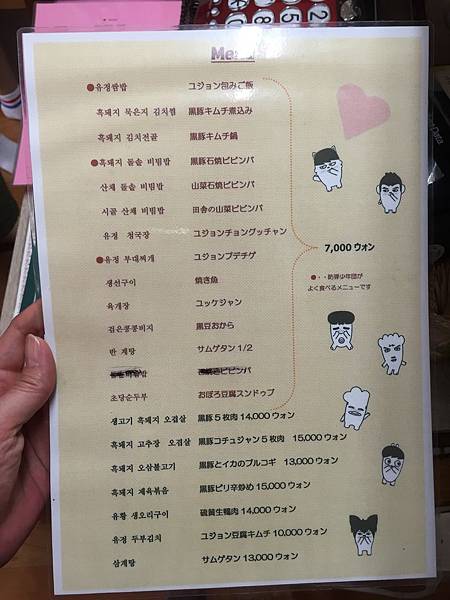 Menu
●유정쌈밥 ユジョン包みご飯
흑돼지 묵은지 김치찜 黒豚キムチ煮込み
흑돼지 김치전골 黒豚キムチ鍋
●흑돼지 돌솥 비빔밥 黒豚石焼ビビンバ
산채 돌솥 비빔밥 山菜石焼ビビンバ
시골 산채 비빔밥 田舎の山菜ビビンバ
유정 청국장 ユジョンチョングッチャン
●유정 부대찌개 ユジョンプデチゲ
7,000 ウォン
●・・防弾少年団が
よく食べるメニューです
생선구이 焼き魚
육개장 ユッケジャン
검은콩콩비지 黒豆おから
반 계탕 サムゲタン 1/2
비빔밥 ビビンバ
초당순두부 おぼろ豆腐スンドゥブ
생고기 흑돼지 오겹살 黒豚5枚肉 14,000 ウォン
흑돼지 고추장 오겹살 黒豚コチュジャン5枚肉 15,000 ウォン
흑돼지 오삼불고기 黒豚とイカのプルコギ 13,000 ウォン
흑돼지 제육볶음 黒豚ピリ辛炒め 15,000 ウォン
유황 생오리구이 硫黄生鴨肉 14,000 ウォン
유정 두부김치 ユジョン豆腐キムチ 10,000 ウォン
삼계탕 サムゲタン 13,000 ウォン